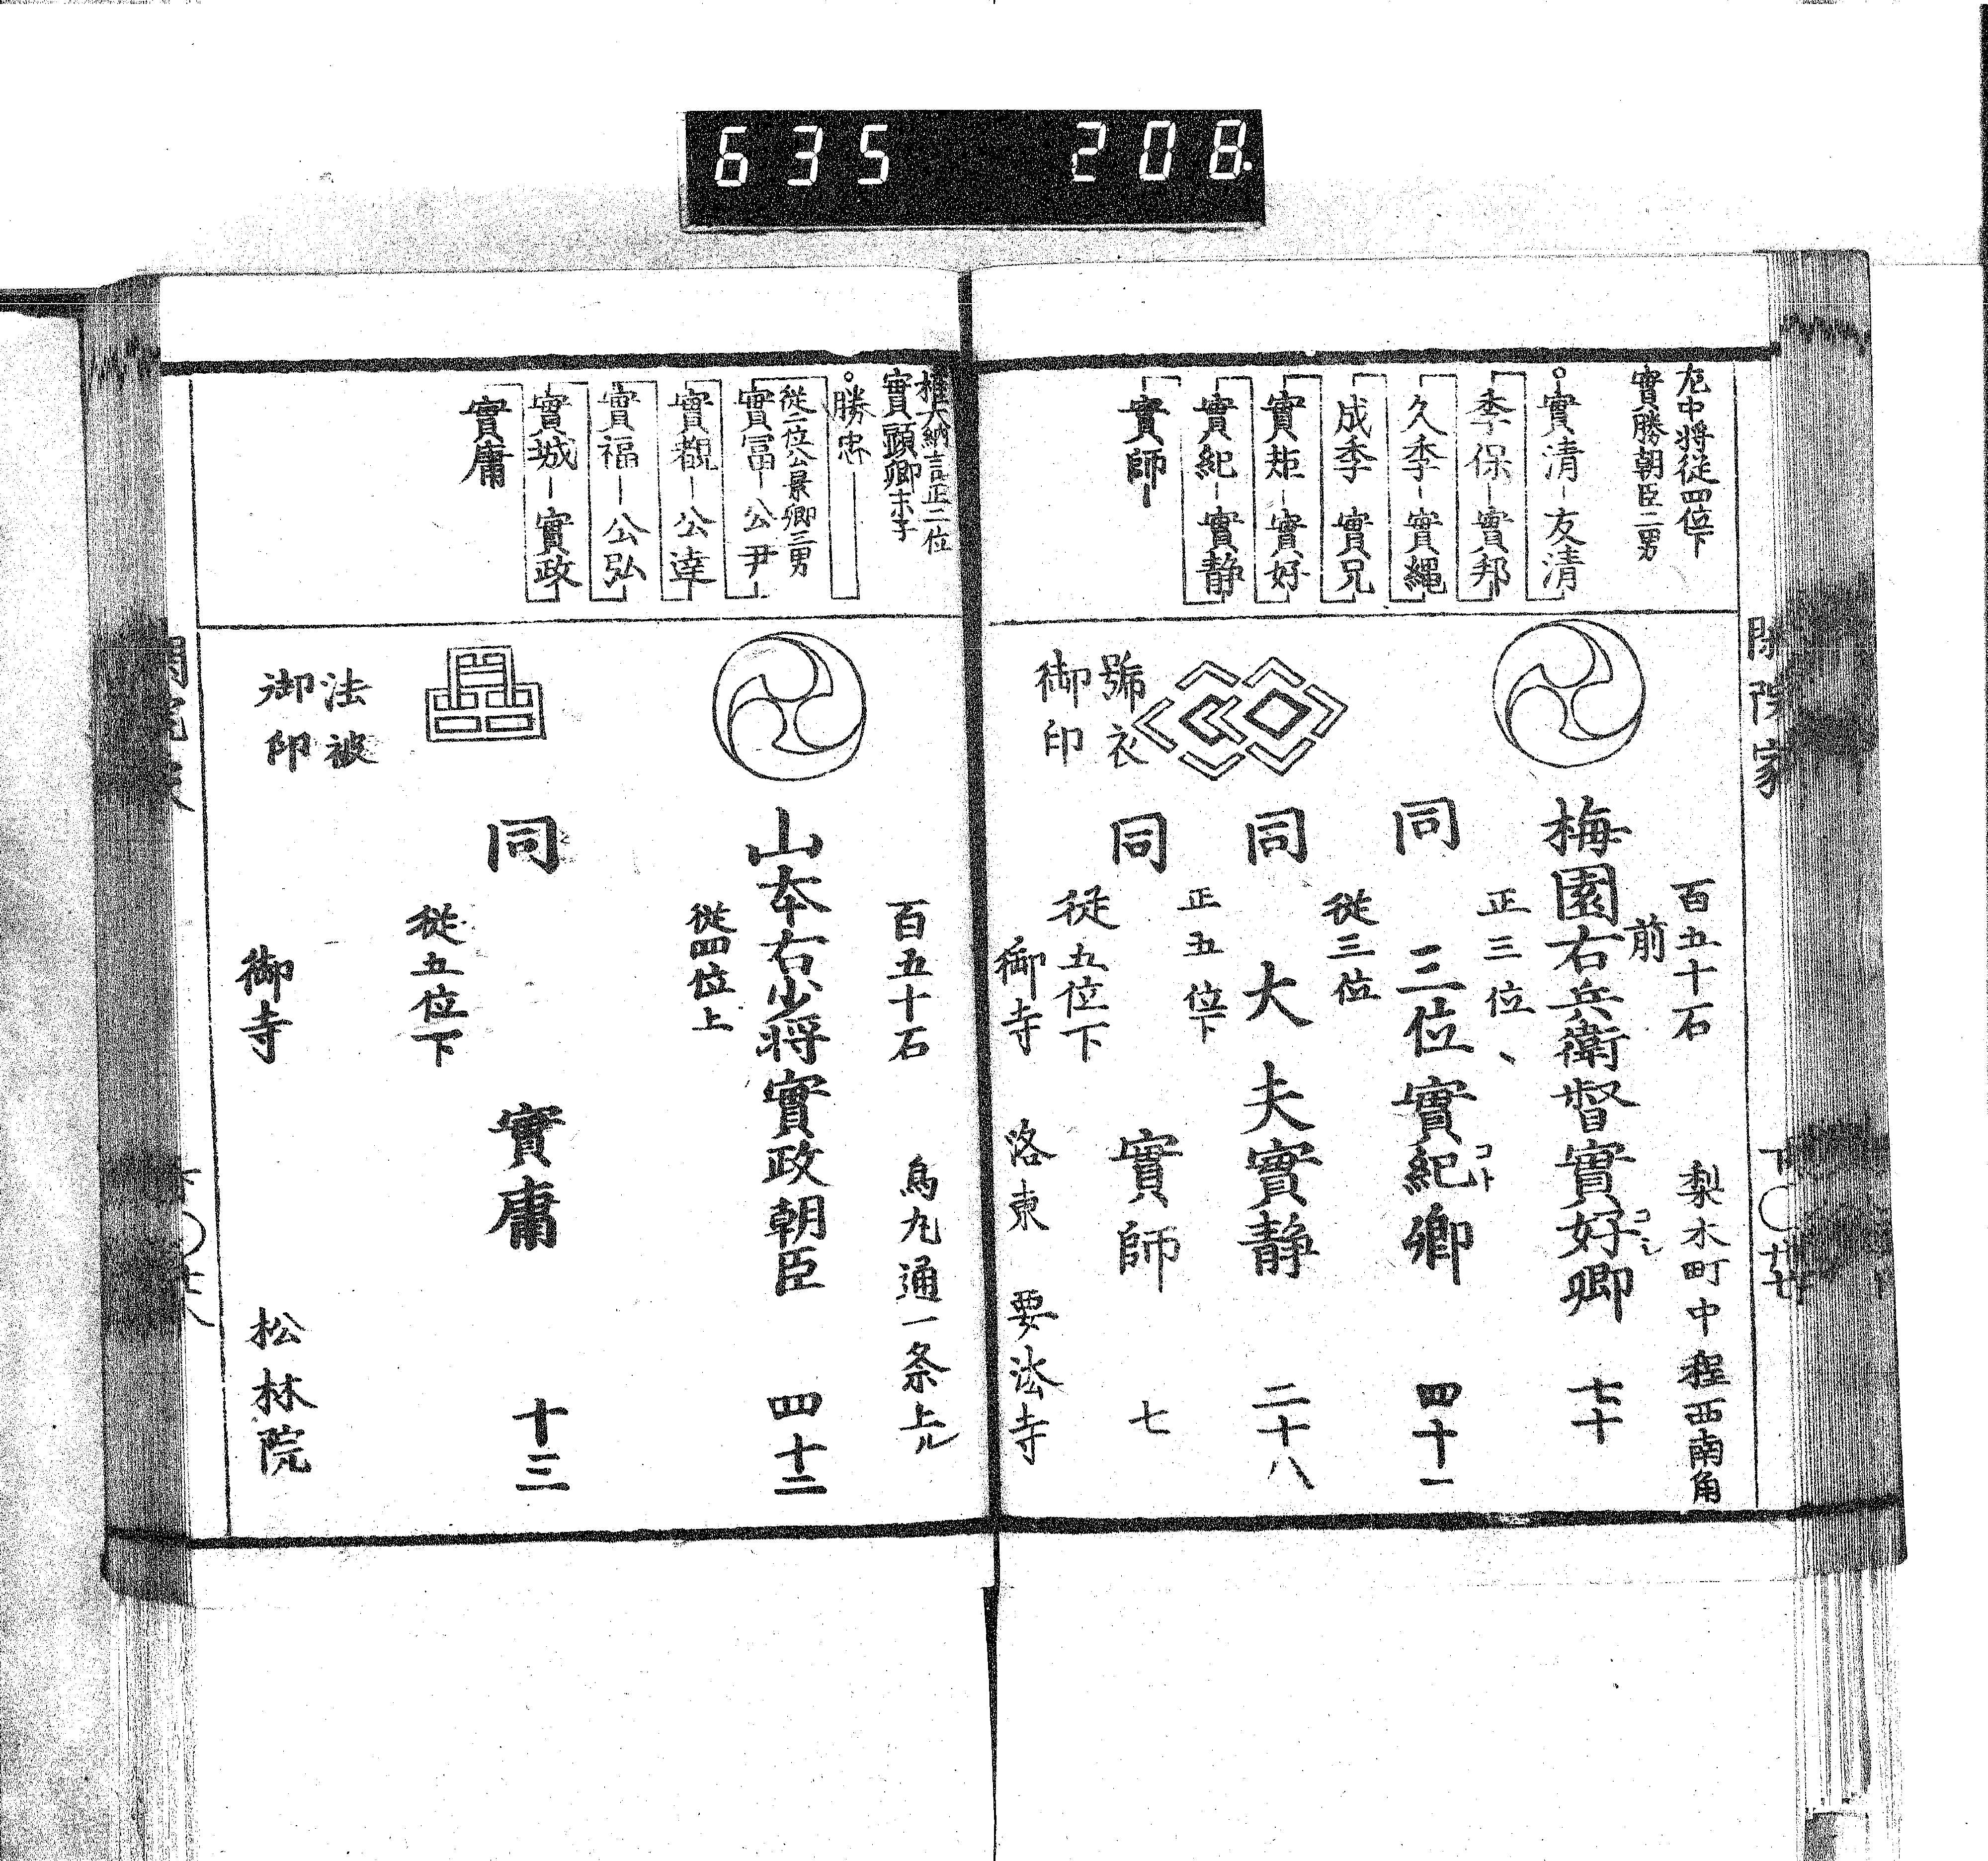 635 208.
閑院家
左中将従四位下
實勝朝臣二男
實清-友清
季保-實邦
久季-實縄
成季 實兄
實矩-實好
實紀-實静
實師-
百五十石 梨木町中程西南角
前
梅園右兵衛督實好卿 七十
コシ
正三位、
同 三位實紀卿 四十一
コト
従三位
同 大夫實静 二十八
正五位下
同 實師 七
従五位下
號衣
御印
御寺 洛東 要法寺
權大納言正二位
實顕卿末子
勝忠
従二位公景卿三男
實冨-公尹
實觀-公達
實福-公弘
實城-實政
實庸
百五十石 烏丸通一条上ル
山本右少将實政朝臣 四十二
従四位上
同 實庸 十三
従五位下
法被
御印
御寺 松林院